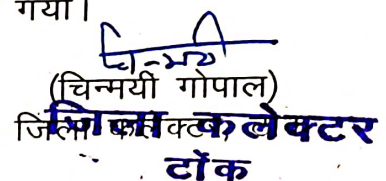 गया।
चिन्मयी
(चिन्मयी गोपाल)
जिला कलेक्टर
जिला कलेक्टर
टोंक